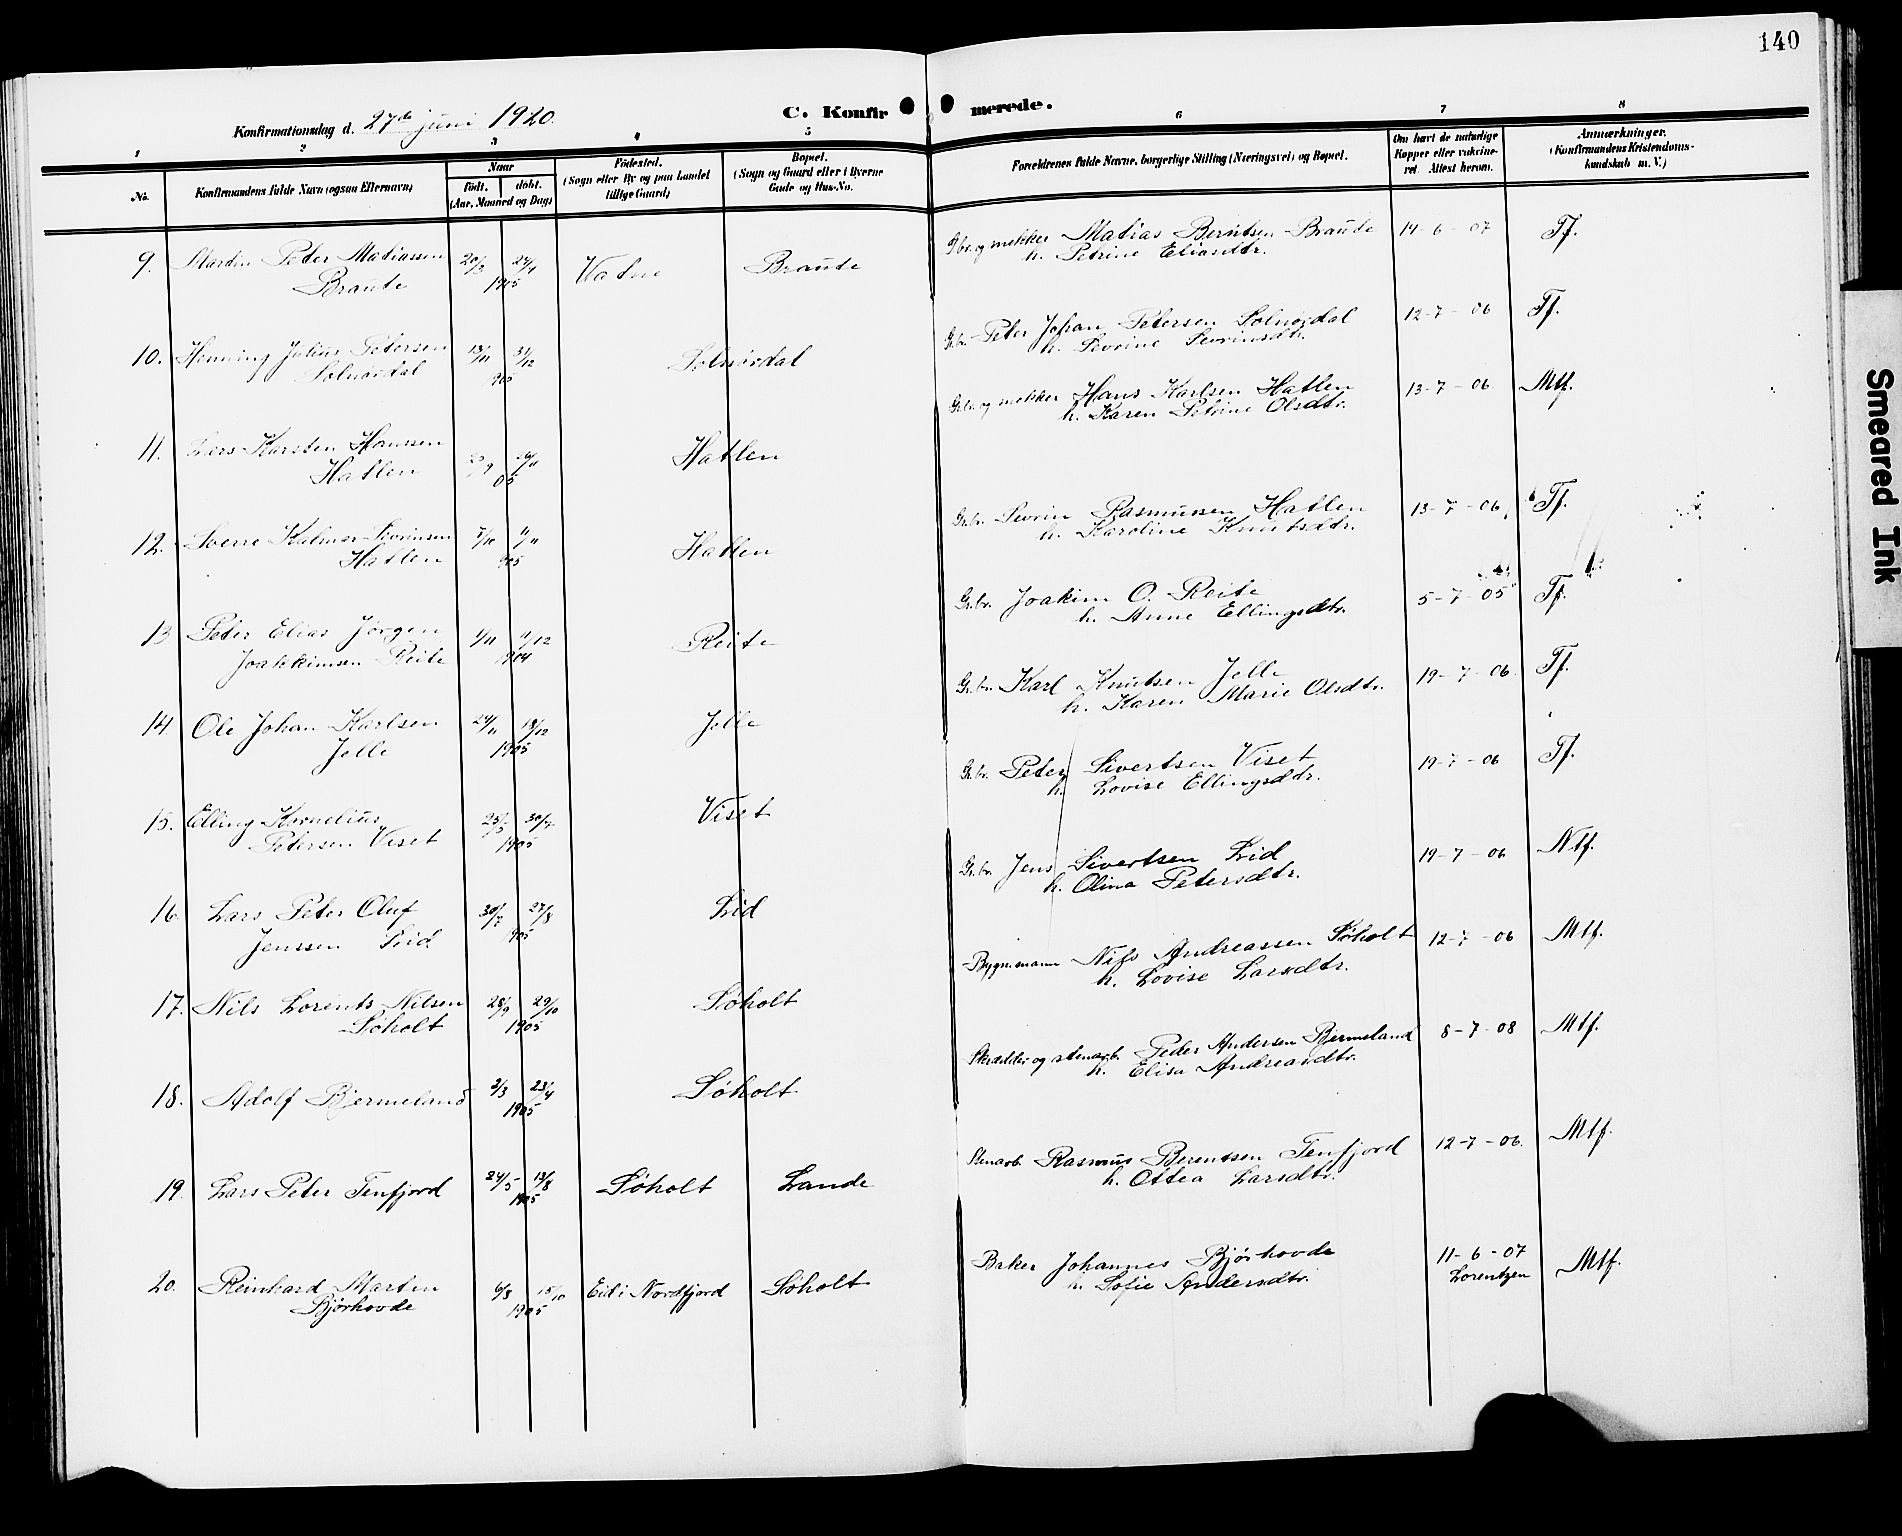 140
Konfirmationsdag d. 27de juni 1920.
C. Konfirmerede.
1 2 3 4 5 6 7 8
No.
Konfirmandens fulde Navn (ogsaa Efternavn)
Naar
født. døbt.
(Aar, Maaned og Dag)
Fødested.
(Sogn eller By og paa Landet
tillige Gaard)
Bopæl.
(Sogn og Gaard eller i Byerne
Gade og Hus-No.
Forældrenes fulde Navne, borgerlige Stilling (Næringsvei) og Bopæl.
Om havt de naturlige
Kopper eller vakcine-
ret. Attest herom.
Anmærkninger.
(Konfirmandens Kristendoms-
kundskab m. V.)
9. Martin Peter Matiassen Braute 20/3 24/4 1905 Vatne Braute
Gbr. og mekker Matias Berntsen Braute 14-6-07 Tf.
h. Petrine Eliasdtr.
10. Henning Julius Petersen Solnørdal 13/11 31/12 905 Solnørdal
Gbr. Peter Johan Petersen Solnørdal 12-7-06 Tf.
h. Sevrine Sevrinsdtr.
11. Lars Karsten Hanssen Hatlen 05 Hatlen
Gbr. og mekker Hans Karlsen Hatlen 13-7-06 Mtf.
h. Karen Petrine Olsdtr.
12. Sverre Kalmar Sevrinsen Hatlen 905 Hatlen
Gr.br. Sevrin Rasmussen Hatlen 13-7-06 Tf.
h. Karoline Knutsdtr.
13 Peter Elias Jørgen
Joakkimsen Reite 1/11 11/12 1904 Reite
Gr.br. Joakim O. Reite 5-7-05 Tf.
h. Anne Ellingsdtr.
14. Ole Johan Karlsen
Jelle 24/11 18/12 1905 Jelle
Gr.br. Karl Knutsen Jelle 19-7-06 Tf.
h. Karen Marie Olsdtr.
15. Elling Kornelius
Petersen Viset 25/5 30/7 1905 Viset
Gr.br. Peter Sivertsen Viset 19-7-06 Tf.
h. Lovise Ellingsdtr.
16. Lars Peter Oluf
Jenssen Lid 30/7 27/8 905 Lid
Gr.br. Jens Sivertsen Lid 19-7-06 Ntf.
h. Olina Petersdtr.
17. Nils Lorents Nilsen
Søholt 28/9 29/10 1905 Søholt
Bygn.mann Nils Andreassen Søholt 12-7-06 Mtf.
h. Lovise Larsdtr.
18. Adolf Bjermeland 2/3 23/4 1905 Søholt
Skrædder og stenarb. Peder Andersen Bjermeland 8-7-08 Mtf.
h. Elisa Andreasdtr.
19. Lars Peter Tenfjord 24/5 13/8 1905 Søholt Lande
Stenarb. Rasmus Berentsen Tenfjord 12-7-06. Mtf.
h. Ottea Larsdtr.
20. Reinhard Martin
Bjørhovde 6/8 15/10 1905 Eid i Nordfjord Søholt
Baker Johannes Bjørhovde 11-6-07 Mtf.
h. Sofie Andersdtr. Lorentzen
Smeared Ink